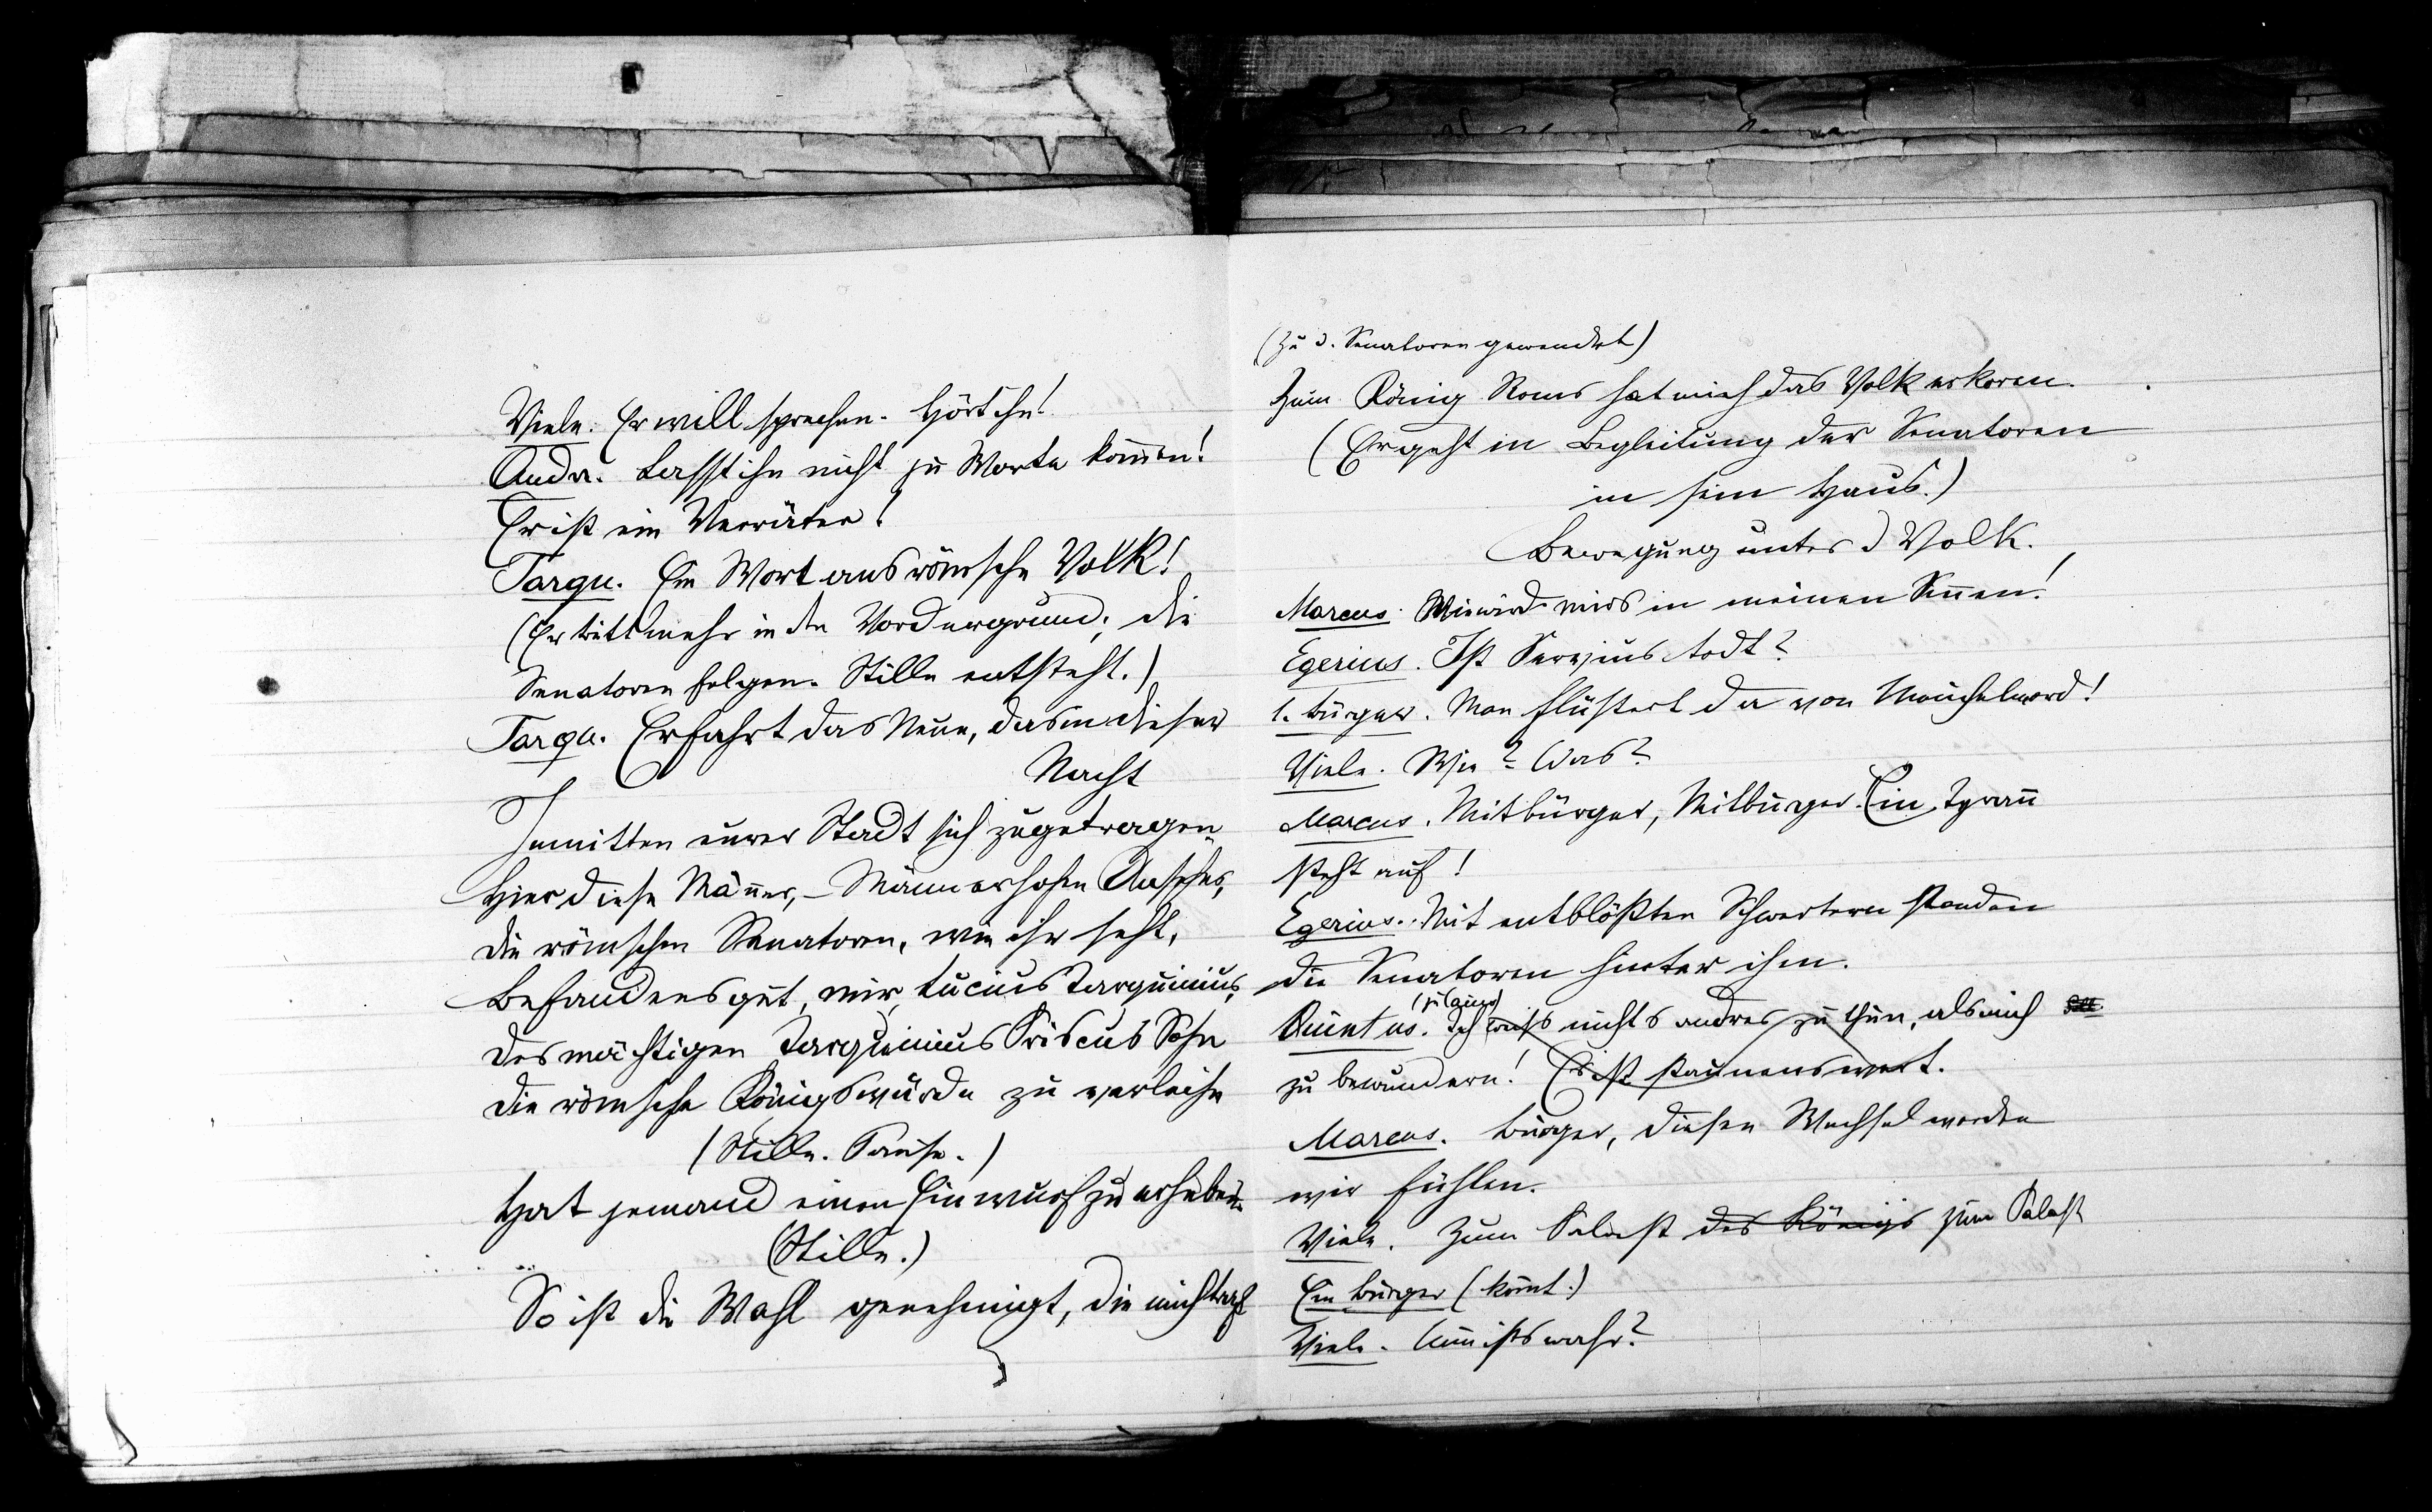 Viele. Er will sprechen. Hört ihn!
Andr. Lasst ihn nicht zu Worte kom̄en!
Er ist ein Verräter!
Tarqu. Ein Wort ans römsche Volk!
(Er tritt mehr in den Vordergrund; die
Senatoren folgen. Stille entsteht.)
Tarqu. Erfahrt das Neue, das in dieser
Nacht
Inmitten eurer Stadt sich zugetragen
Hier diese Män̄er, – Männer hohen Ansehns,
die römschen Senatoren, wie ihr seht,
Befandens gut, mir, Lucius Tarquinius,
Des mächtigen Tarquinius Priscus Sohn
die römsche Königswürde zu verleihn
(Stille. Pause.)
Hat jemand einen Einwurf zu erheben
(Stille.)
So ist die Wahl genehmigt, die mich traf
(zu d. Senatoren gewendet)
Zum König Roms hat mich das Volk erkoren.
(Er geht in Begleitung der Senatoren
in sein Haus.)
Bewegung unter d Volk.
Marcus. Wie wird mirs in meinen Sin̄en!
Egerius. Ist Servius todt?
1. Bürger. Man flüstert da von Meuchelmord!
Viele. Wie? Was?
Marcus. Mitbürger, Mitbürger. Ein Tyran̄
steht auf!
Egerius. Mit entblößten Schwertern standen
die Senatoren hinter ihm.
Quintus. Ich weiß nichts andres zu thun, als mich
zu bewundern! Es ist staunenswert.
Marcus. Bürger, diesen Wechsel werden
wir fühlen.
Viele. Zum Palast des Königs zum Palast
Ein Bürger (kom̄t.)
Viele. Nun ists wahr?